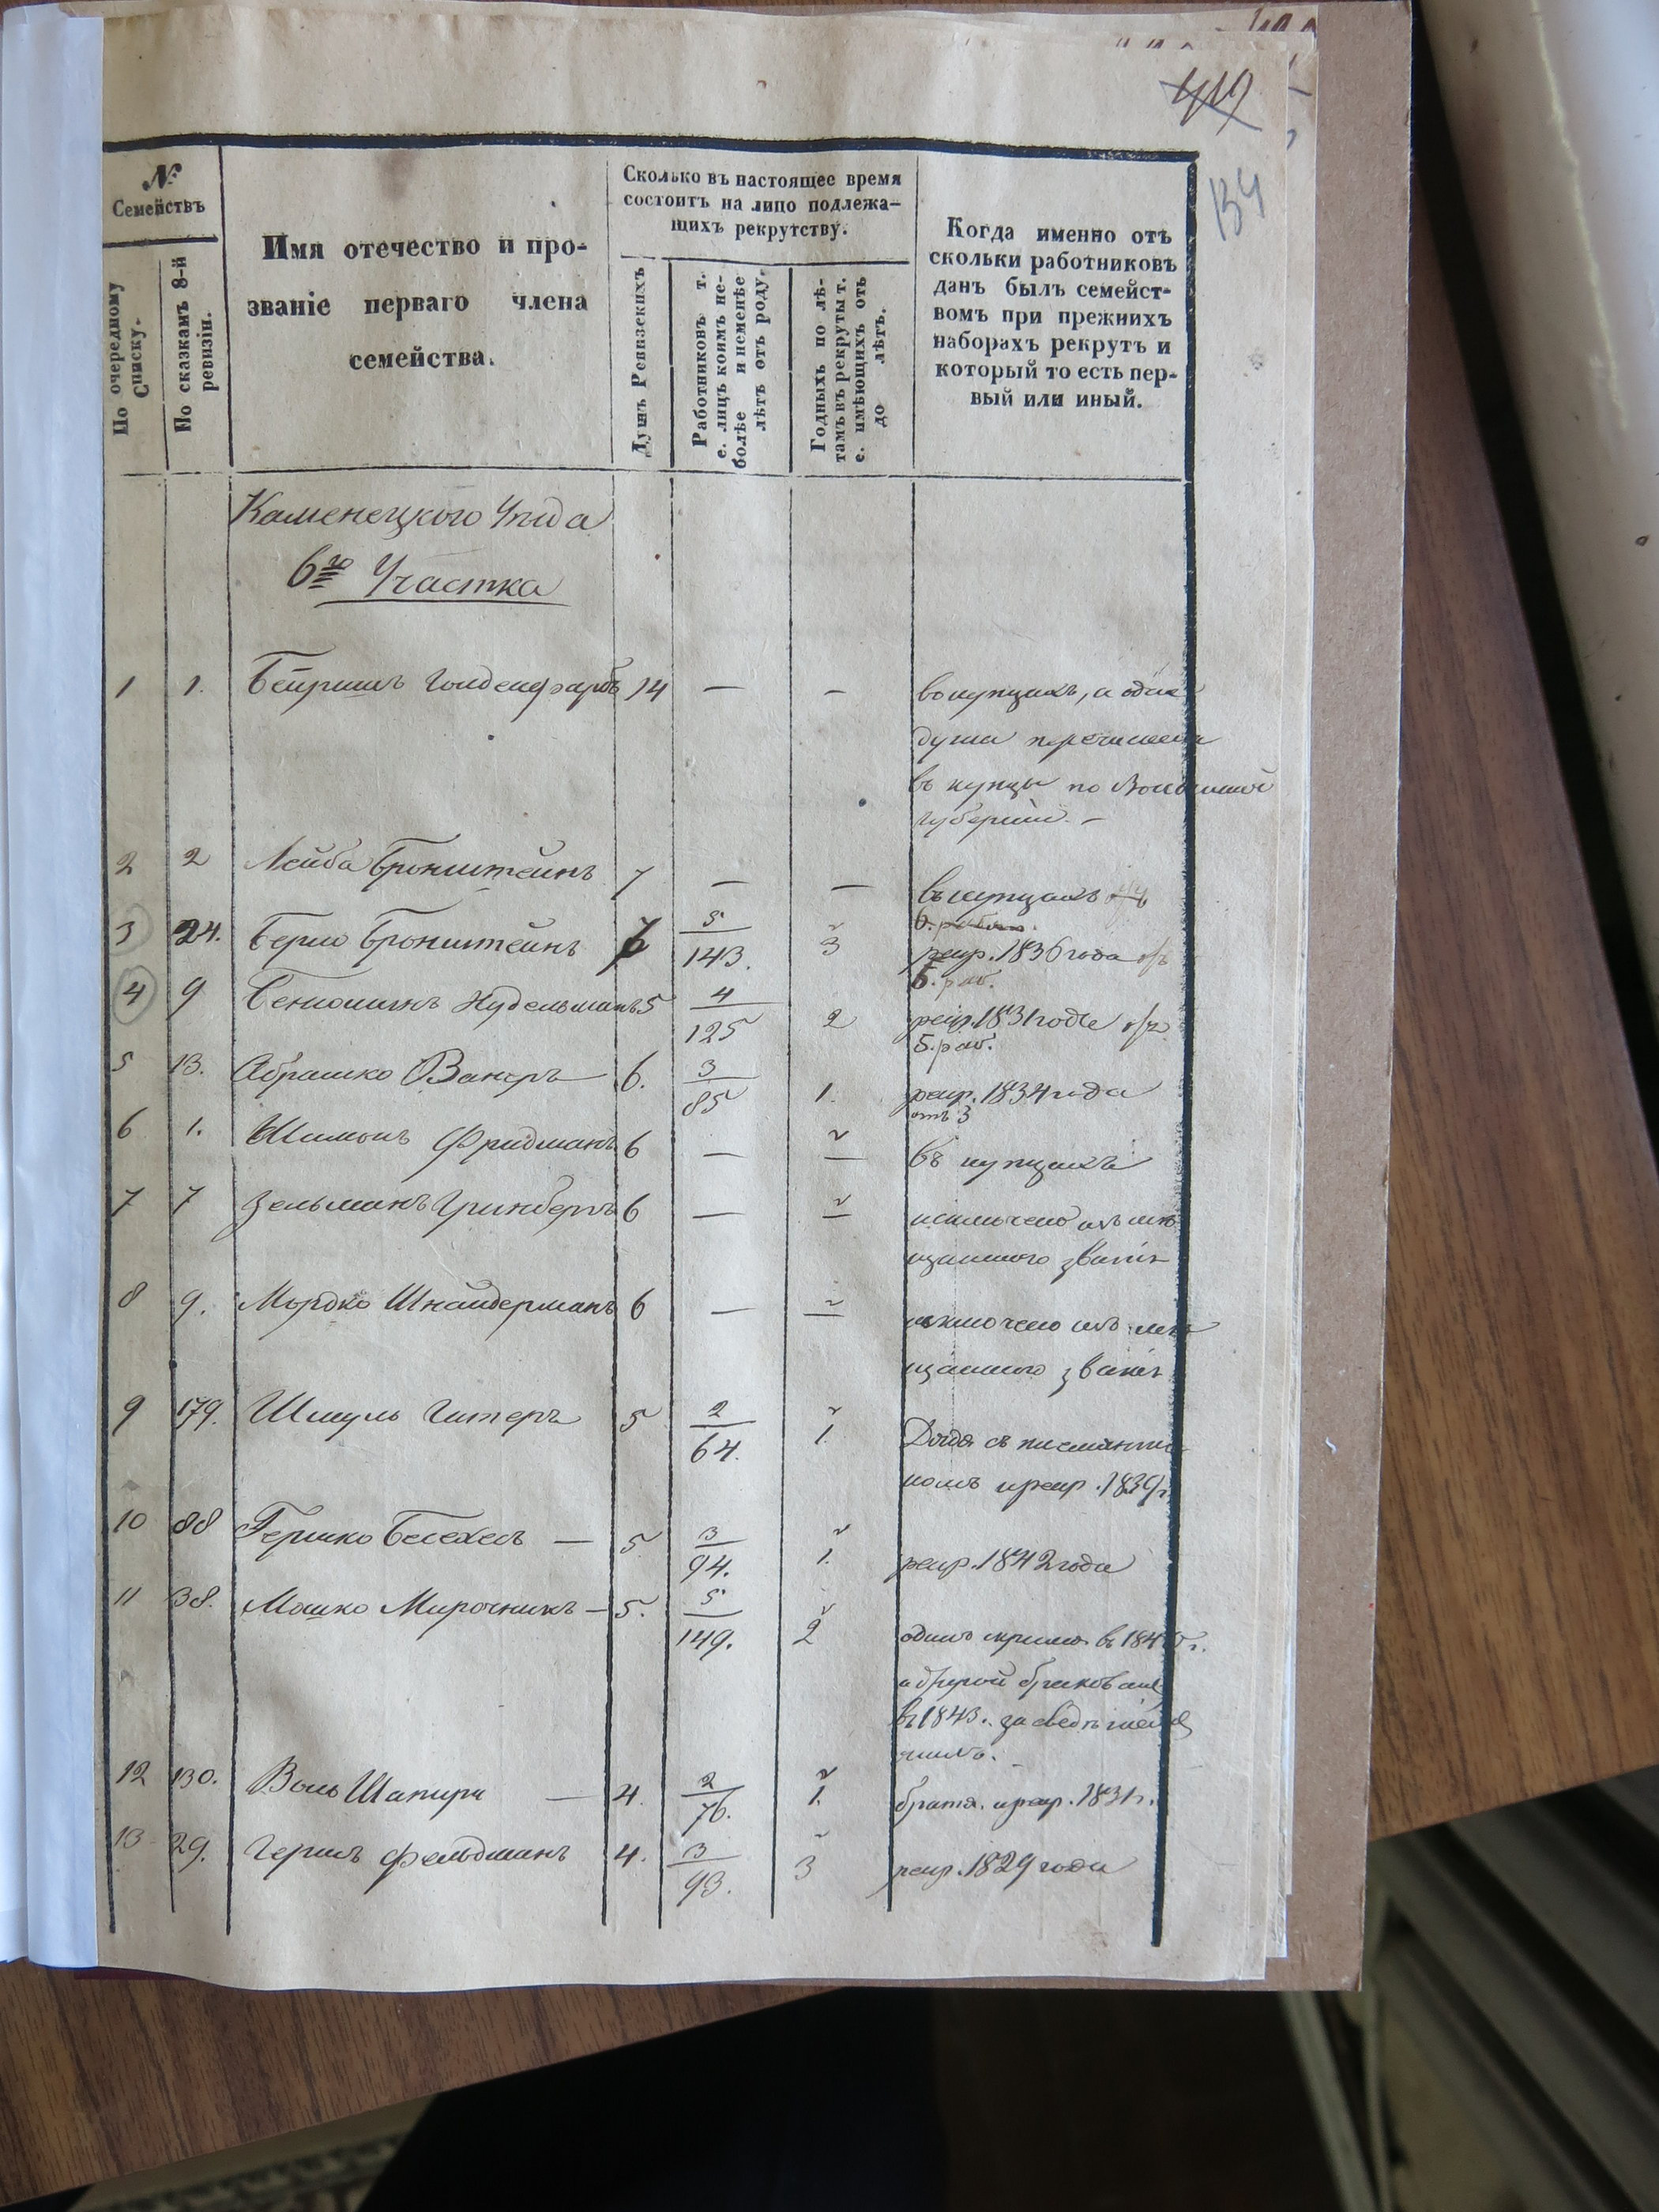 419
134
№
Семействъ
По очередному
Списку.
По сказкамъ 8-й
ревизіи.
Имя отечество и про-
званіе перваго члена
семейства.
Сколько въ настоящее время
состоитъ на лицо подлежа-
щихъ рекрутству.
Душъ Ревизскихъ
Работниковъ т.
е. лицъ коимъ не-
болѣе и неменѣе
лѣтъ отъ роду.
Годныхъ по лѣ-
тамъ въ рекруты т.
е. имѣющихъ отъ
до лѣтъ.
Когда именно отъ
скольки работниковъ
данъ былъ семейст-
вомъ при прежнихъ
наборахъ рекрутъ и
который то есть пер-
вый или иный.
Каменецкого Уѣзда
6го Участка
1 1. Бейришъ Голденфарбъ 14 — — в купцахъ, а одна
душа перечислена
въ купцы по
губерніи. —
2 2 Лейба Бронштейнъ 7 — — въ купцахъ
3 24. Берко Бронштейнъ 5/143. 3 рекр. 1836 года
5. раб.
4 9 Нудельманъ 5 4/125 2 рекр. 1831 года
5. раб.
5 13. Абрашко Ванеръ 6. 3/85 1. рекр. 1834 года
отъ 3
6 1. Шимонъ Фридманъ 6 — — въ купцахъ
7 7 Зельманъ Гринбергъ 6 — — исключено изъ мѣ
щанского званія
8 9. Мордко Шнайдерманъ 6 — — исключено изъ мѣ
щанского званія
9 179. Шмуль 5 2/64. 1.
рекр. 1839 г.
10 88 Гершко — 5 3/94. 1. рекр. 1842 года
11 38. Мошко Мирочникъ — 5. 5/149. 2 одинъ
а другой бракованъ
въ 1843.
12 130. Шапира — 4. 2/76. 1. рекр. 1831 г.
13 29. Гершъ Фельдманъ 4. 3/93. 3 рекр. 1829 года